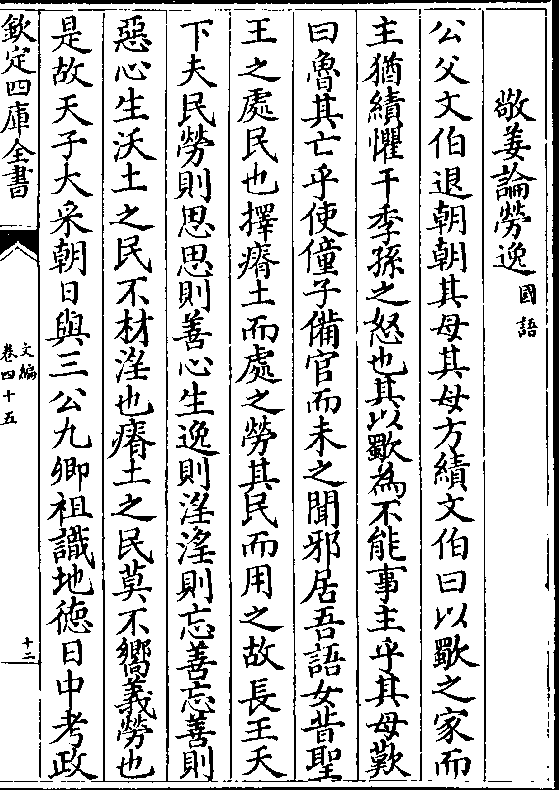 敬姜論勞逸 國語
公父文伯退朝朝其母其母方績文伯曰以歜之家而
主猶績懼干季孫之怒也其以歜為不能事主乎其母歎
曰魯其亡乎使僮子備官而未之聞邪居吾語女昔聖
王之處民也擇瘠土而處之勞其民而用之故長王天
下夫民勞則思思則善心生逸則淫淫則忘善忘善則
惡心生沃土之民不材淫也瘠土之民莫不嚮義勞也
是故天子大采朝日與三公九卿祖識地徳日中考政
欽定四庫全書
文編
卷四十五
十二